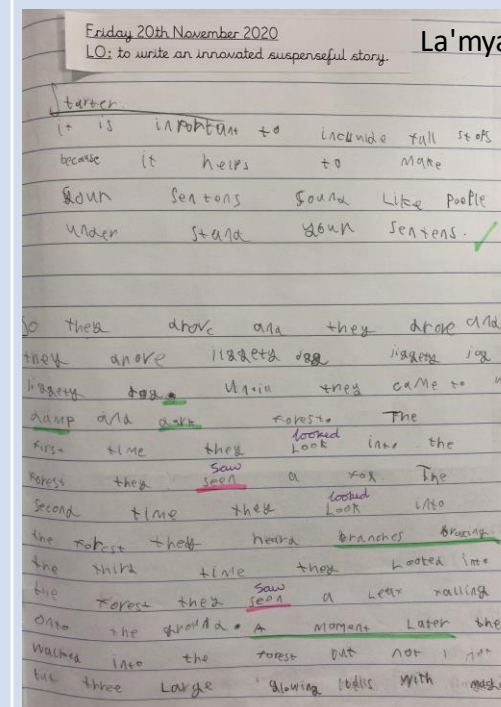 Friday 20th November 2020
LO: to write an innovated suspenseful story.
La'mya
Starter.
it is inportant to inclunide full stops
because it helps to make
your sentens sound Like poeple
under stand your sentens.
So they drove and they drove and
they drove jiggety jog jiggety jog
jiggety jog. Untill they came to
damp and dark forest. The
looked
first time they Look into the
saw
forest they seen a fox. The
looked
second time they Look into
the forest they heard branches
the third time they Looked into
saw
the forest they seen a Leaf falling
onto the ground. A moment Later the
walked into the forest but not 1 not
but three Large glowing with